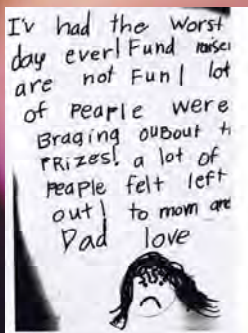 I'v had the worst
day ever! Fund raiser
are not Fun! lot
of PeaPle were
Braging ouBout th
PRizes! a lot of
PeaPle felt left
out! to mom and
Dad love